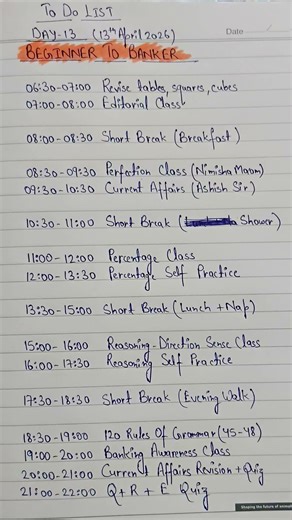 To Do LIST
Date
DAY-13 (13th April 2026)
BEGINNER TO BANKER
06:30-07:00 Revise tables, squares, cubes
07:00-08:00 Editorial Class
08:00-08:30 Short Break (Breakfast)
08:30-09:30 Perfection Class (Nimisha Mam)
09:30-10:30 Current Affairs (Ashish Sir)
10:30-11:00 Short Break (Shower)
11:00-12:00 Percentage Class
12:00-13:30 Percentage Self Practice
13:30-15:00 Short Break (Lunch + Nap)
15:00-16:00 Reasoning-Direction Sense Class
16:00-17:30 Reasoning Self Practice
17:30-18:30 Short Break (Evening Walk)
18:30-19:00 120 Rules Of Grammar (45-48)
19:00-20:00 Banking Awareness Class
20:00-21:00 Current Affairs Revision + Quiz
21:00-22:00 Q + R + E Quiz
Shaping the future of